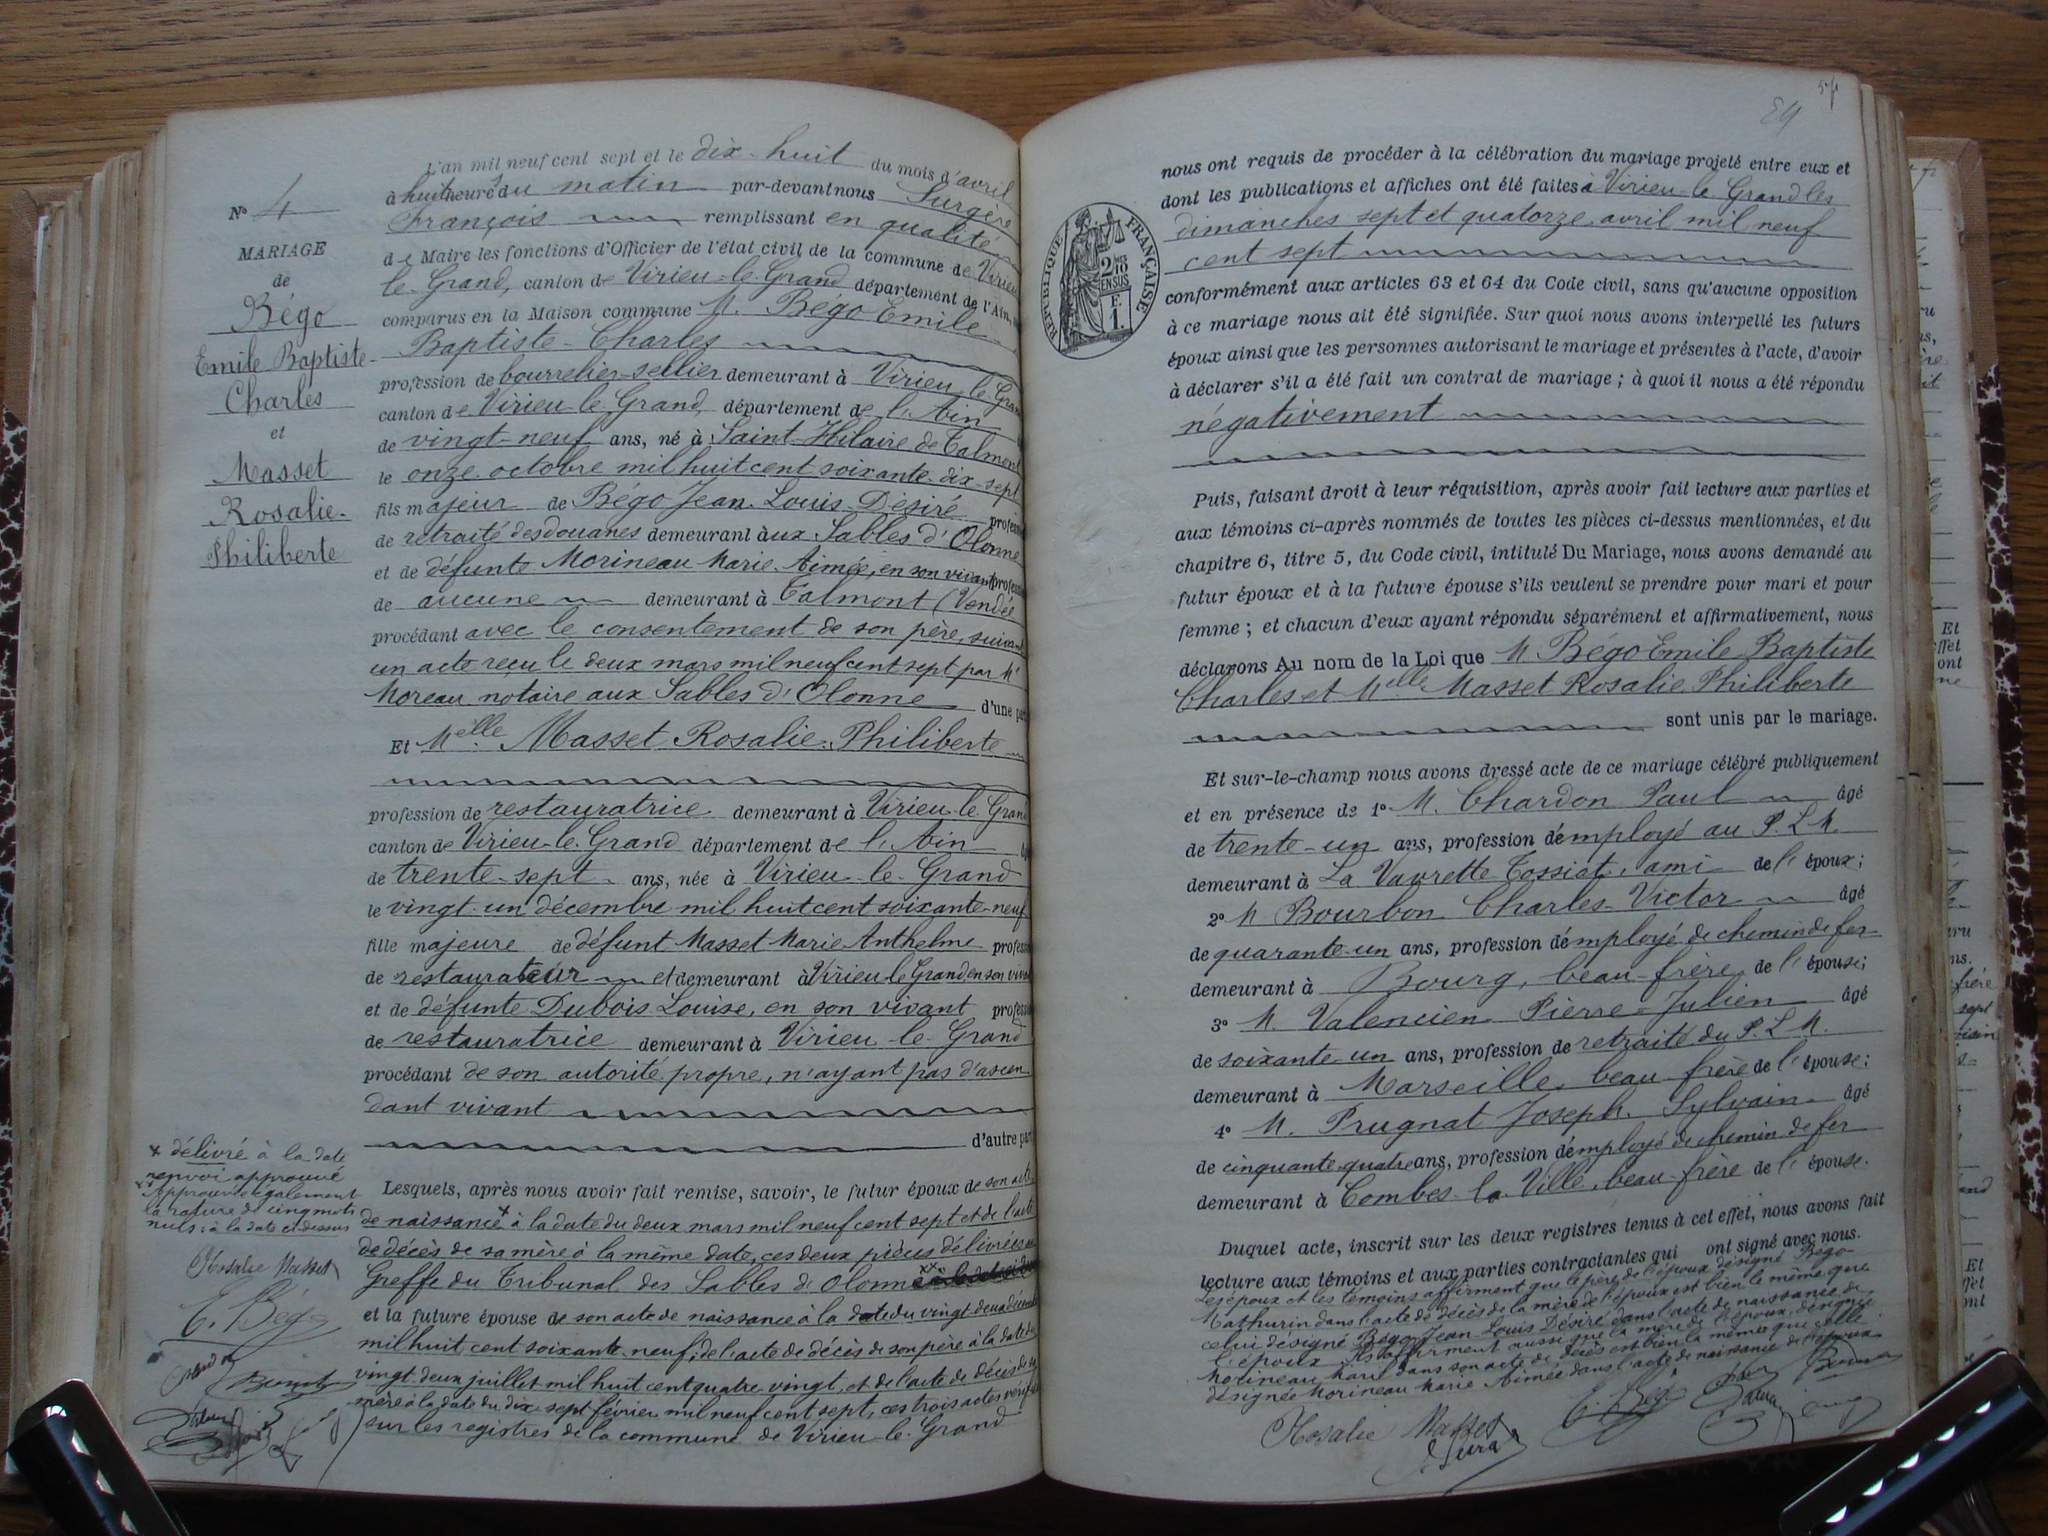 N° 4
MARIAGE
de
Bégo
Emile Baptiste
Charles
et
Masset
Rosalie-
Philiberte
L'an mil neuf cent sept et le dix-huit du mois d'avril
à huit heures du matin par-devant nous Surgère
François remplissant en qualité
de Maire les fonctions d'Officier de l'état civil de la commune de Virieu
le-Grand, canton de Virieu-le-Grand département de l'Ain,
comparus en la Maison commune M. Bégo Emile
Baptiste-Charles
profession de bourrelier-sellier demeurant à Virieu-le-Grand
canton de Virieu-le-Grand, département de l'Ain
de vingt-neuf ans, né à Saint-Hilaire de Talmont
le onze octobre mil huit cent soixante-dix-sept
fils majeur de Bégo Jean-Louis-Désiré profession
de retraité des douanes demeurant aux Sables d'Olonne
et de défunte Morineau Marie-Aimée, en son vivant profession
de aucune demeurant à Talmont (Vendée
procédant avec le consentement de son père, suivant
un acte reçu le deux mars mil neuf cent sept par Me
Moreau notaire aux Sables d'Olonne d'une part
Et Melle Masset Rosalie-Philiberte
profession de restauratrice demeurant à Virieu-le-Grand
canton de Virieu-le-Grand département de l'Ain
de trente-sept ans, née à Virieu-le-Grand
le vingt-un décembre mil huit cent soixante-neuf
fille majeure de défunt Masset Marie-Anthelme profession
de restaurateur et demeurant à Virieu-le-Grand en son vivant
et de défunte Dubois Louise, en son vivant profession
de restauratrice demeurant à Virieu-le-Grand
procédant de son autorité propre, n'ayant pas d'ascen
dant vivant
d'autre part
Lesquels, après nous avoir fait remise, savoir, le futur époux de son acte
de naissance x à la date du deux mars mil neuf cent sept et de l'acte
de décès de sa mère à la même date, ces deux pièces délivrées au
Greffe du Tribunal des Sables d'Olonne
et la future épouse de son acte de naissance à la date du vingt-deux décembre
mil huit cent soixante-neuf, de l'acte de décès de son père à la date du
vingt-deux juillet mil huit cent quatre-vingt, et de l'acte de décès de sa
mère à la date du dix-sept février mil neuf cent sept, ces trois actes
sur les registres de la commune de Virieu-le-Grand
x délivré à la date
renvoi approuvé
Approuvé également
la rature de cinq mots
nuls à la date ci-dessus
Rosalie Masset
E. Bégo
59
nous ont requis de procéder à la célébration du mariage projeté entre eux et
dont les publications et affiches ont été faites à Virieu-le-Grand les
dimanches sept et quatorze avril mil neuf
cent sept
RÉPUBLIQUE FRANÇAISE
conformément aux articles 63 et 64 du Code civil, sans qu'aucune opposition
à ce mariage nous ait été signifiée. Sur quoi nous avons interpellé les futurs
époux ainsi que les personnes autorisant le mariage et présentes à l'acte, d'avoir
à déclarer s'il a été fait un contrat de mariage ; à quoi il nous a été répondu
négativement
Puis, faisant droit à leur réquisition, après avoir fait lecture aux parties et
aux témoins ci-après nommés de toutes les pièces ci-dessus mentionnées, et du
chapitre 6, titre 5, du Code civil, intitulé Du Mariage, nous avons demandé au
futur époux et à la future épouse s'ils veulent se prendre pour mari et pour
femme ; et chacun d'eux ayant répondu séparément et affirmativement, nous
déclarons Au nom de la Loi que M. Bégo Emile Baptiste
Charles et Melle Masset Rosalie Philiberte
sont unis par le mariage.
Et sur-le-champ nous avons dressé acte de ce mariage célébré publiquement
et en présence de 1° M. Chardon Paul âgé
de trente-un ans, profession d'employé au P.L.M.
demeurant à La Vavrette Tossiat, ami de l'époux ;
2° M Bourbon Charles-Victor âgé
de quarante-un ans, profession d'employé de chemin de fer
demeurant à Bourg, beau-frère de l'épouse ;
3° M. Valencien Pierre-Julien âgé
de soixante-un ans, profession de retraité du P.L.M.
demeurant à Marseille beau-frère de l'épouse ;
4° M. Prugnat Joseph-Sylvain âgé
de cinquante-quatre ans, profession d'employé de chemin de fer
demeurant à Combes-la-Ville, beau-frère de l'épouse.
Duquel acte, inscrit sur les deux registres tenus à cet effet, nous avons fait
lecture aux témoins et aux parties contractantes qui ont signé avec nous.
Les époux et les témoins affirment que le père de l'époux désigné Bégo
Mathurin dans l'acte de décès de la mère de l'époux est bien le même que
celui désigné Bégo Jean Louis Désiré dans l'acte de naissance de
l'époux. Ils affirment aussi que la mère de l'époux, désignée
Morineau Marie dans son acte de décès est bien la même que celle
désignée Morineau Marie Aimée dans l'acte de naissance de l'époux
Rosalie Masset
E. Bégo